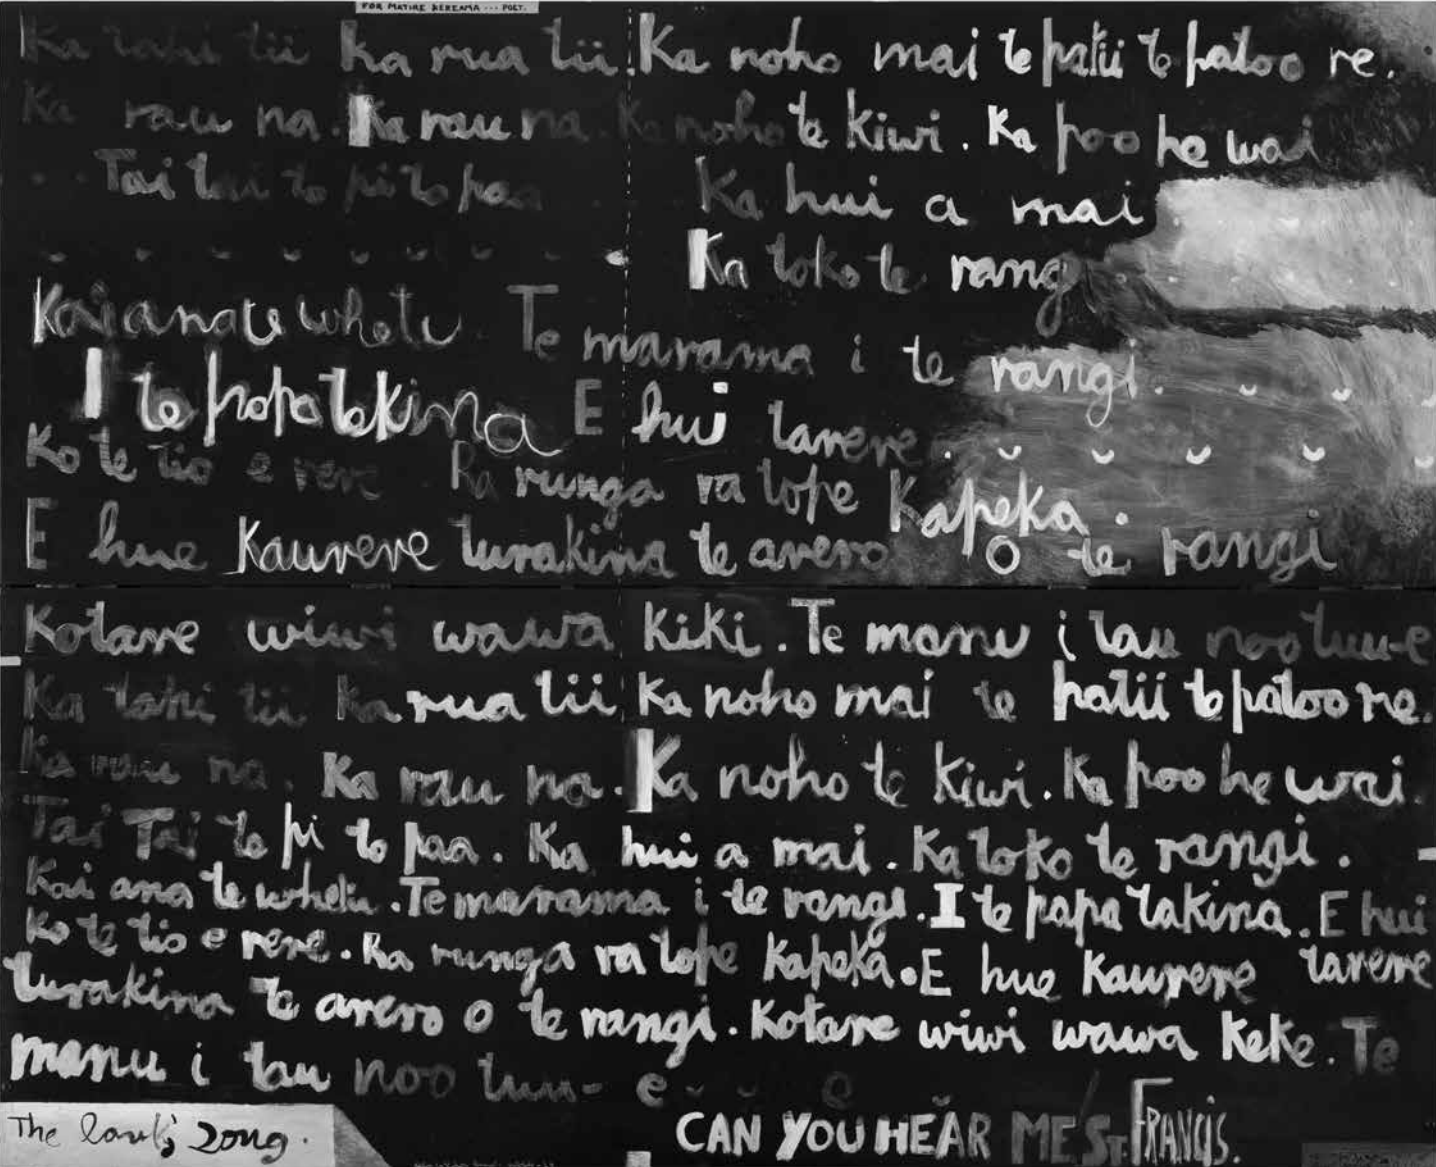 FOR MATIRE KEREAMA ... POET.
Ka tahi tii Ka rua tii. Ka noho mai te patii te patoo re.
Ka rau na. Ka rau na. Ka noho te kiwi. Ka poo he wai
.. Tai tai te pi to paa Ka hui a mai
Ka toko te rangi
Kai ana te whetu. Te marama i te rangi.
I te papa takina E hui tarere.
Ko te tio e rere Ra runga ra tope Kapeka.
E hue Kaurere turakina te arero O te rangi
Kotare wiwi wawa Kiki. Te manu i tau noo tuu-e
Ka tahi tii Ka rua tii Ka noho mai te patii te patoo re.
Ka rau na. Ka rau na. Ka noho te kiwi. Ka poo he wai.
Tai Tai te pi to paa. Ka hui a mai. Ka toko te rangi.
Kai ana te whetu. Te marama i te rangi. I te papa takina. E hui
Ko te tio e rere. Ra runga ra tope Kapeka. E hue Kaurere tarere
turakina te arero o te rangi. Kotare wiwi wawa Keke. Te
manu i tau noo tuu- e e
The lark's song.
CAN YOU HEAR ME ST. FRANCIS.